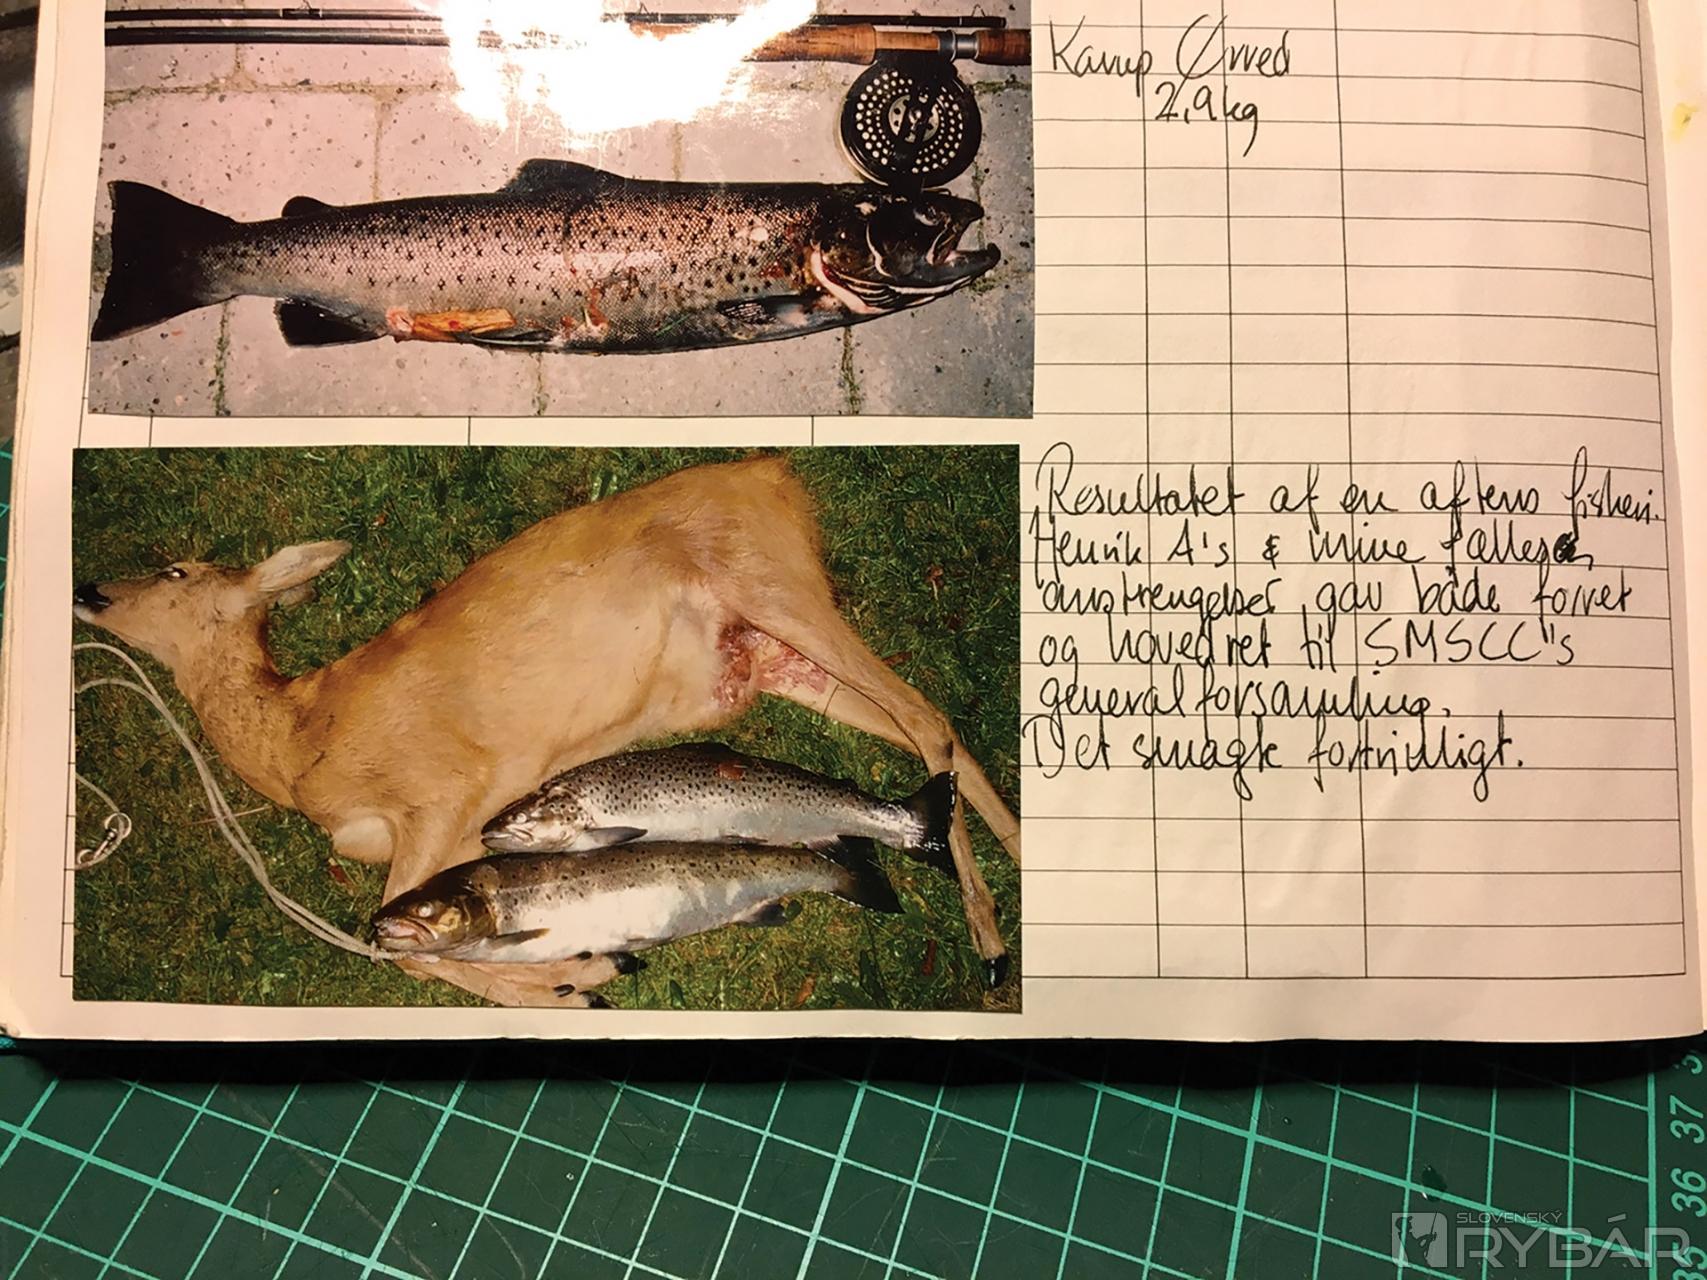 Karup Ørred
2,9 kg
Resultatet af en aftens fiskeri.
Henrik A's & mine fælles
anstrengelser, gav både forret
og hovedret til SMSCC's
generalforsamling.
Det smagte fortrinligt.
37
36
35
SLOVENSKÝ
RYBÁR